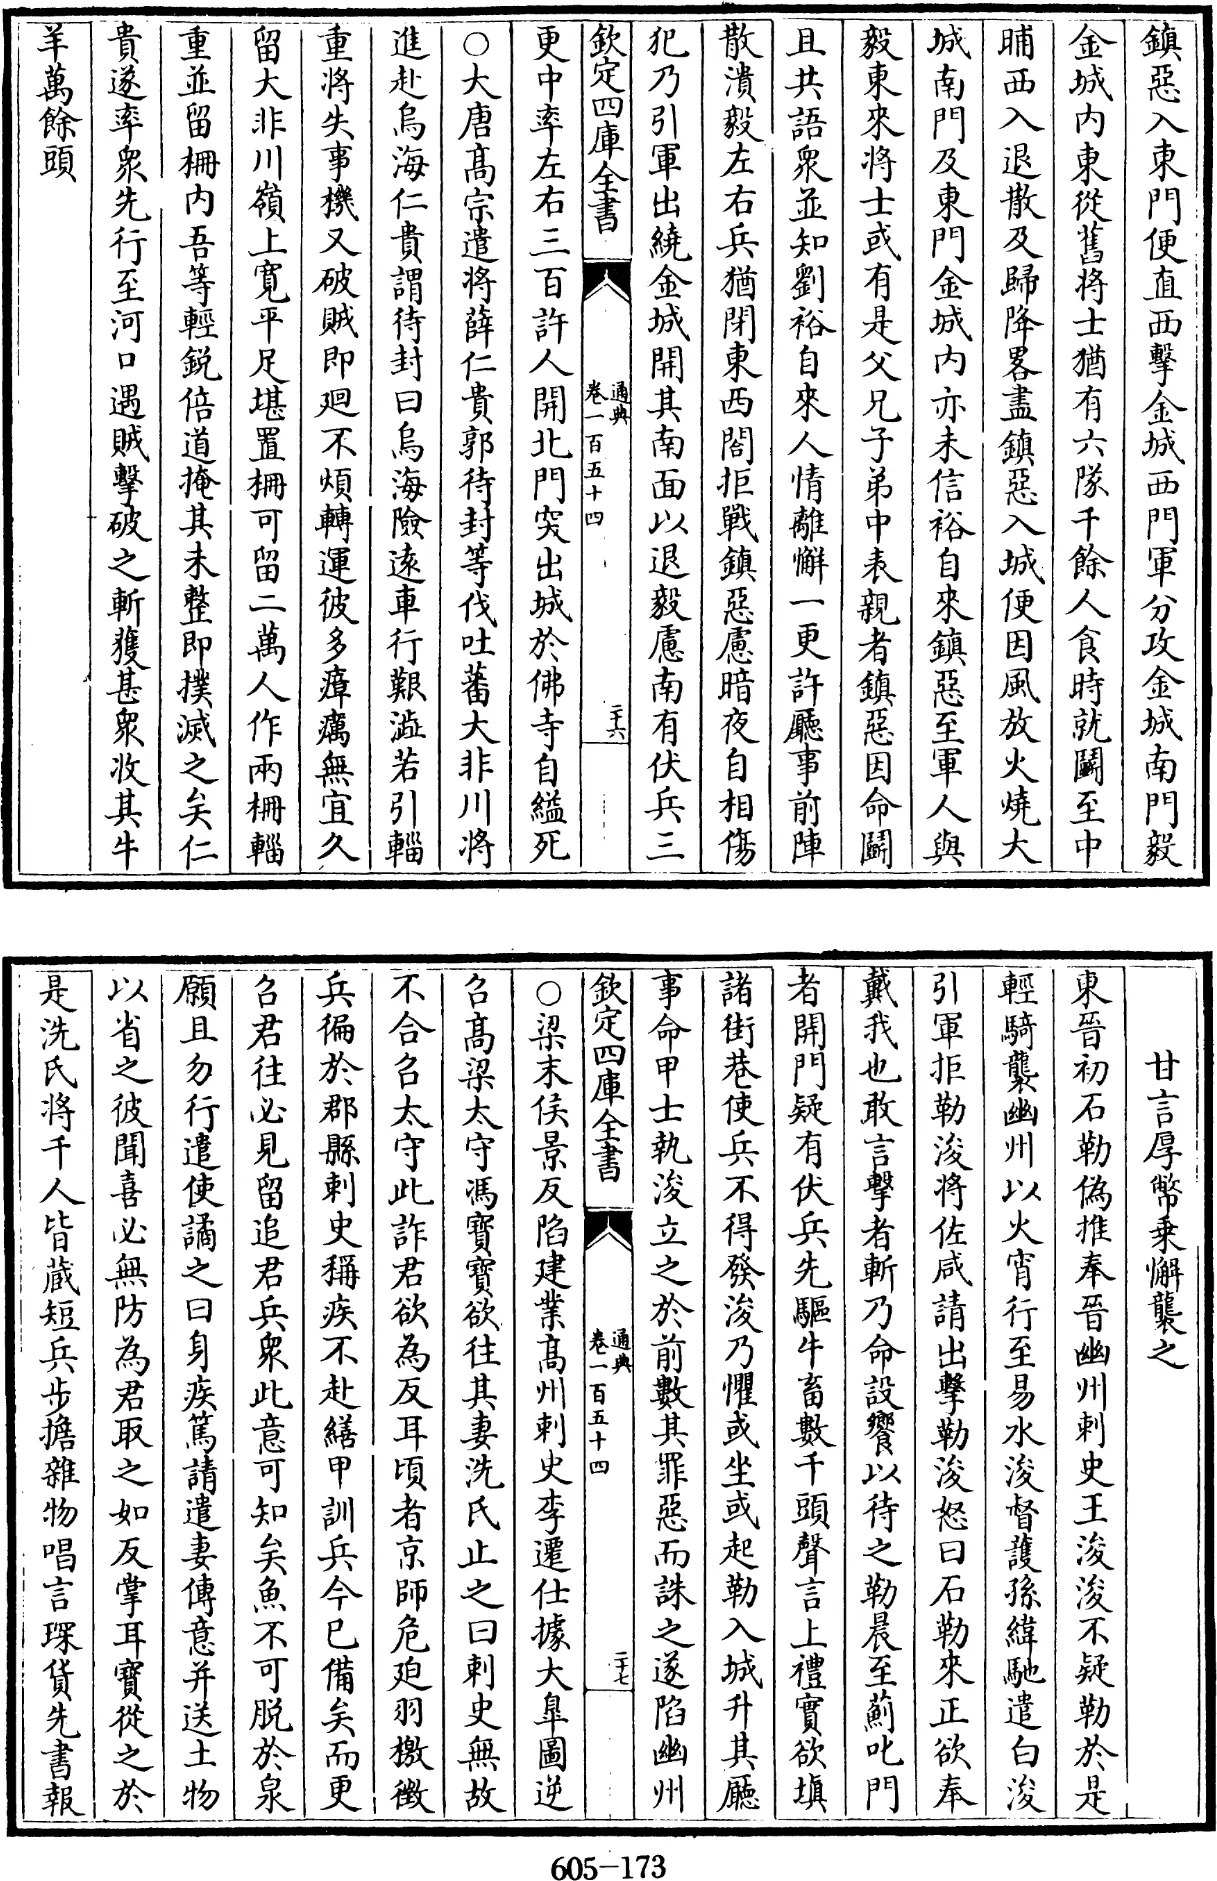 鎮惡入東門便直西擊金城西門軍分攻金城南門毅
金城内東從舊將士猶有六隊千餘人食時就鬭至中
晡西入退散及歸降畧盡鎮惡入城便因風放火燒大
城南門及東門金城内亦未信裕自來鎮惡至軍人與
毅東來將士或有是父兄子弟中表親者鎮惡因命鬭
且共語衆並知劉裕自來人情離懈一更許廳事前陣
散潰毅左右兵猶閉東西閤拒戰鎮惡慮暗夜自相傷
犯乃引軍出繞金城開其南面以退毅慮南有伏兵三
欽定四庫全書
通典
卷一百五十四
二十六
更中率左右三百許人開北門突出城於佛寺自縊死
○大唐髙宗遣將薛仁貴郭待封等伐吐蕃大非川將
進赴烏海仁貴謂待封曰烏海險逺車行艱澁若引輜
重將失事機又破賊即廻不煩轉運彼多瘴癘無宜久
留大非川嶺上寛平足堪置柵可留二萬人作兩柵輜
重並留柵内吾等輕鋭倍道掩其未整即撲滅之矣仁
貴遂率衆先行至河口遇賊擊破之斬獲甚衆收其牛
羊萬餘頭
甘言厚幣乗懈襲之
東晉初石勒偽推奉晉幽州刺史王浚浚不疑勒於是
輕騎襲幽州以火宵行至易水浚督護孫緯馳遣白浚
引軍拒勒浚將佐咸請出擊勒浚怒曰石勒來正欲奉
戴我也敢言擊者斬乃命設饗以待之勒晨至薊叱門
者開門疑有伏兵先驅牛畜數千頭聲言上禮實欲填
諸街巷使兵不得發浚乃懼或坐或起勒入城升其廳
事命甲士執浚立之於前數其罪惡而誅之遂陷幽州
欽定四庫全書
通典
卷一百五十四
二十七
○梁末侯景反陷建業髙州刺史李遷仕據大臯圖逆
召髙梁太守馮寳寳欲往其妻洗氏止之曰刺史無故
不合召太守此詐君欲為反耳頃者京師危廹羽檄徵
兵徧於郡縣刺史稱疾不赴繕甲訓兵今已備矣而更
召君往必見留追君兵衆此意可知矣魚不可脱於泉
願且勿行遣使譎之曰身疾篤請遣妻傳意并送土物
以省之彼聞喜必無防為君取之如反掌耳寳從之於
是洗氏將千人皆藏短兵步擔雜物唱言琛貨先書報
605-173